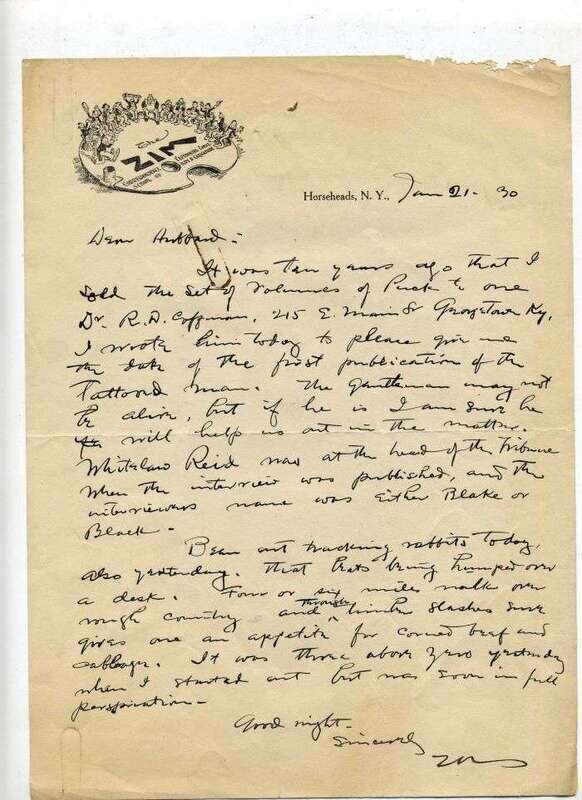 The
ZIM
CORRESPONDENCE SCHOOL OF CARTOONING, COMIC ART & CARICATURE
Horseheads, N. Y., Jan 21 - 30
Dear Hubbard :-
It was ten years ago that I
sold the set of Volumes of Puck to one
Dr. R. D. Coffman, 215 E. Main St Georgetown Ky,
I wrote him today to please give me
the date of the first publication of the
Tattooed man. The gentleman may not
be alive, but if he is I am sure he
will help us out in the matter.
Whitelaw Reid was at the head of the Tribune
when the interview was published, and the
interviewers name was either Blake or
Black -
Been out tracking rabbits today,
also yesterday. That beats being humped over
a desk. Four or six miles walk over
rough country and through timber slashes sure
gives one an appetite for corned beef and
cabbage. It was three above zero yesterday
when I started out but was soon in full
perspiration -
Good night.
Sincerely
Zim